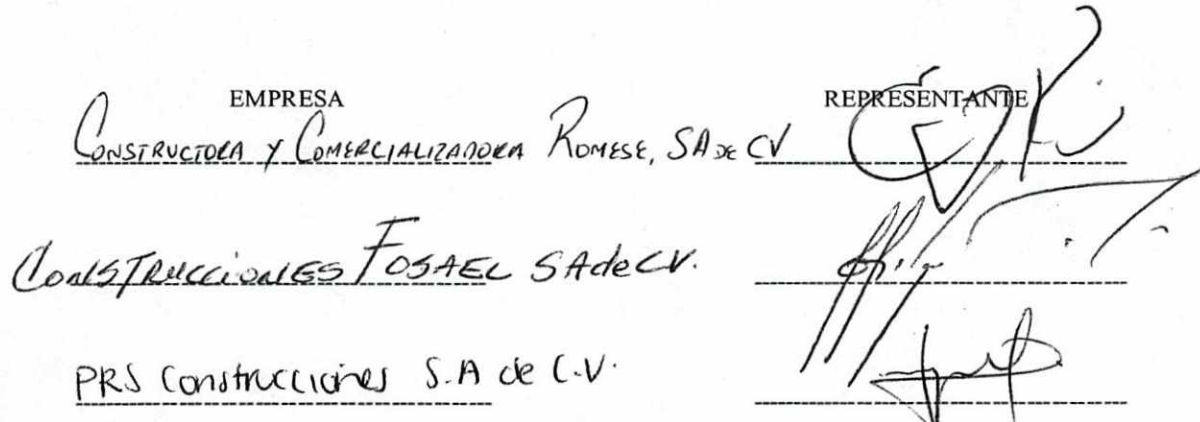 EMPRESA REPRESENTANTE
CONSTRUCTORA Y COMERCIALIZADORA ROMESE, SA DE CV
CONSTRUCCIONES FOSAEL SA de CV.
PRS Construcciones S.A de C.V.